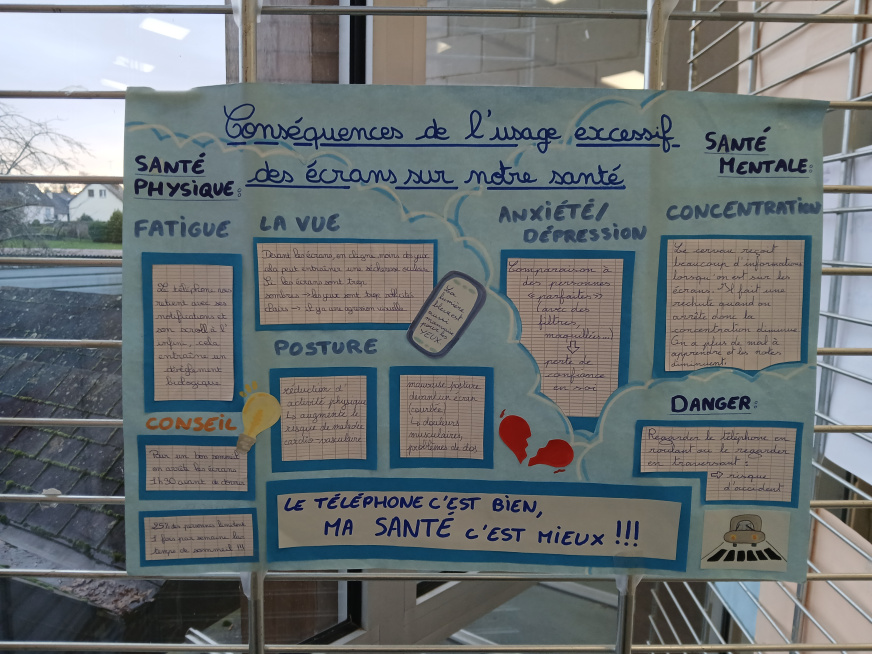 Conséquences de l'usage excessif
des écrans sur notre santé
SANTÉ
PHYSIQUE:
FATIGUE
Le téléphone nous
retient avec ses
notifications et
son scroll à l'
infini, cela
entraîne un
dérèglement
biologique
CONSEIL
Pour un bon sommeil
on arrête les écrans
1h30 avant de dormir
25% des personnes
1 fois par semaine leur
temps de sommeil !!!
LA VUE
Devant les écrans, on cligne moins des yeux
cela peut entraîner une sécheresse oculaire
Si les écrans sont trop
sombres → les yeux sont trop sollicités
clairs → Il y a une agression visuelle
La
lumière
bleue est
aussi
mauvaise
pour les
YEUX
POSTURE
réduction d'
activité physique
↳ augmente le
risque de maladie
cardio-vasculaire
mauvaise posture
devant un écran
(courbée)
↳ douleurs
musculaires,
problèmes de dos
SANTÉ
MENTALE:
ANXIÉTÉ/
DÉPRESSION
Comparaison à
des personnes
«parfaites»
(avec des
filtres,
maquillées...)
perte de
confiance
en soi
CONCENTRATION
Le cerveau reçoit
beaucoup d'informations
lorsqu'on est sur les
écrans. Il fait une
rechute quand on
arrête donc la
concentration diminue
On a plus de mal à
apprendre et les notes
diminuent.
DANGER:
Regarder le téléphone en
roulant ou le regarder
en traversant :
⇨ risque
d'accident
LE TÉLÉPHONE C'EST BIEN,
MA SANTÉ C'EST MIEUX !!!